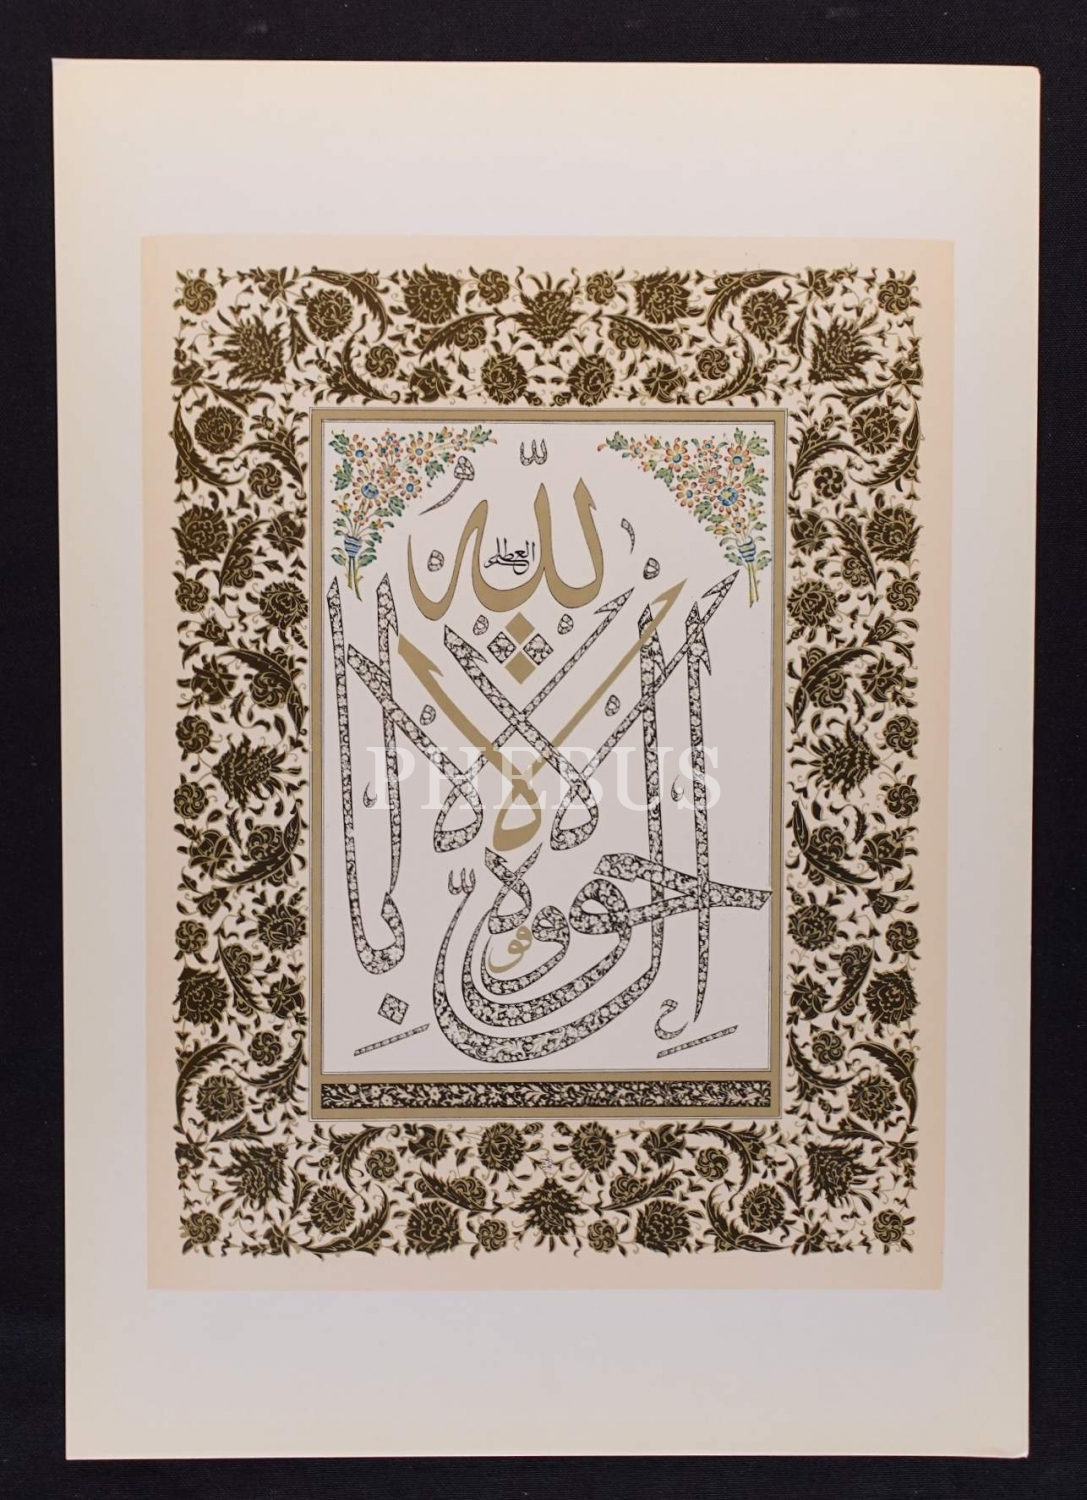 لا حول ولا قوة إلا بالله العلي العظيم
PHEBUS